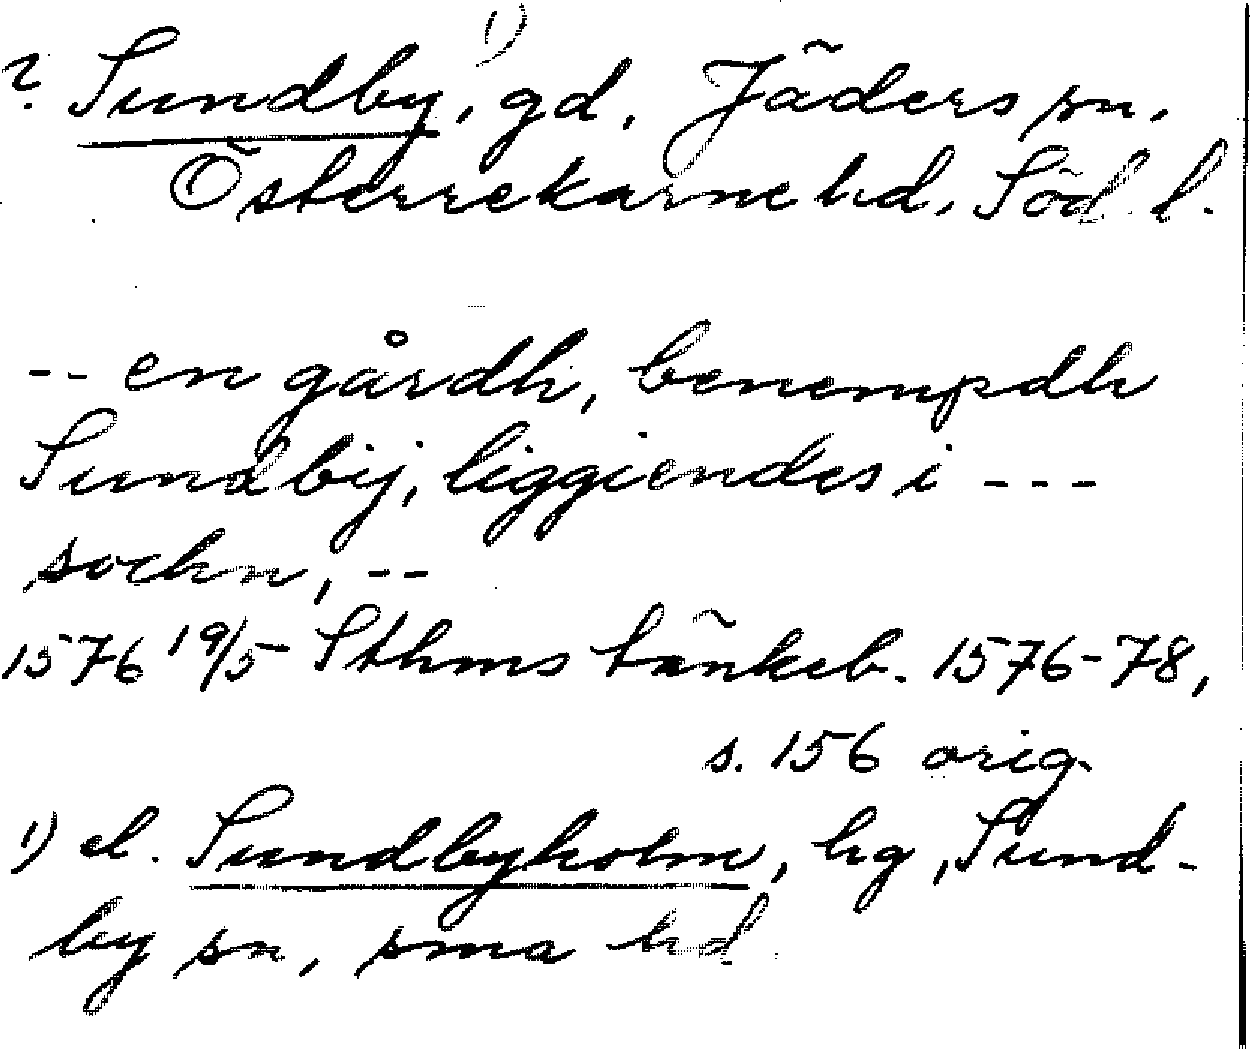 ? Sundby,¹⁾ gd, Jäders sn,
Österrekarne hd, Söd. l.
-- en gårdh, benempdh
Sundbij, liggiendes i ---
sochn, --
1576 19/5 Sthms tänkeb. 1576-78,
s. 156 orig.
1) el. Sundbyholm, hg, Sund-
by sn, sma hd.